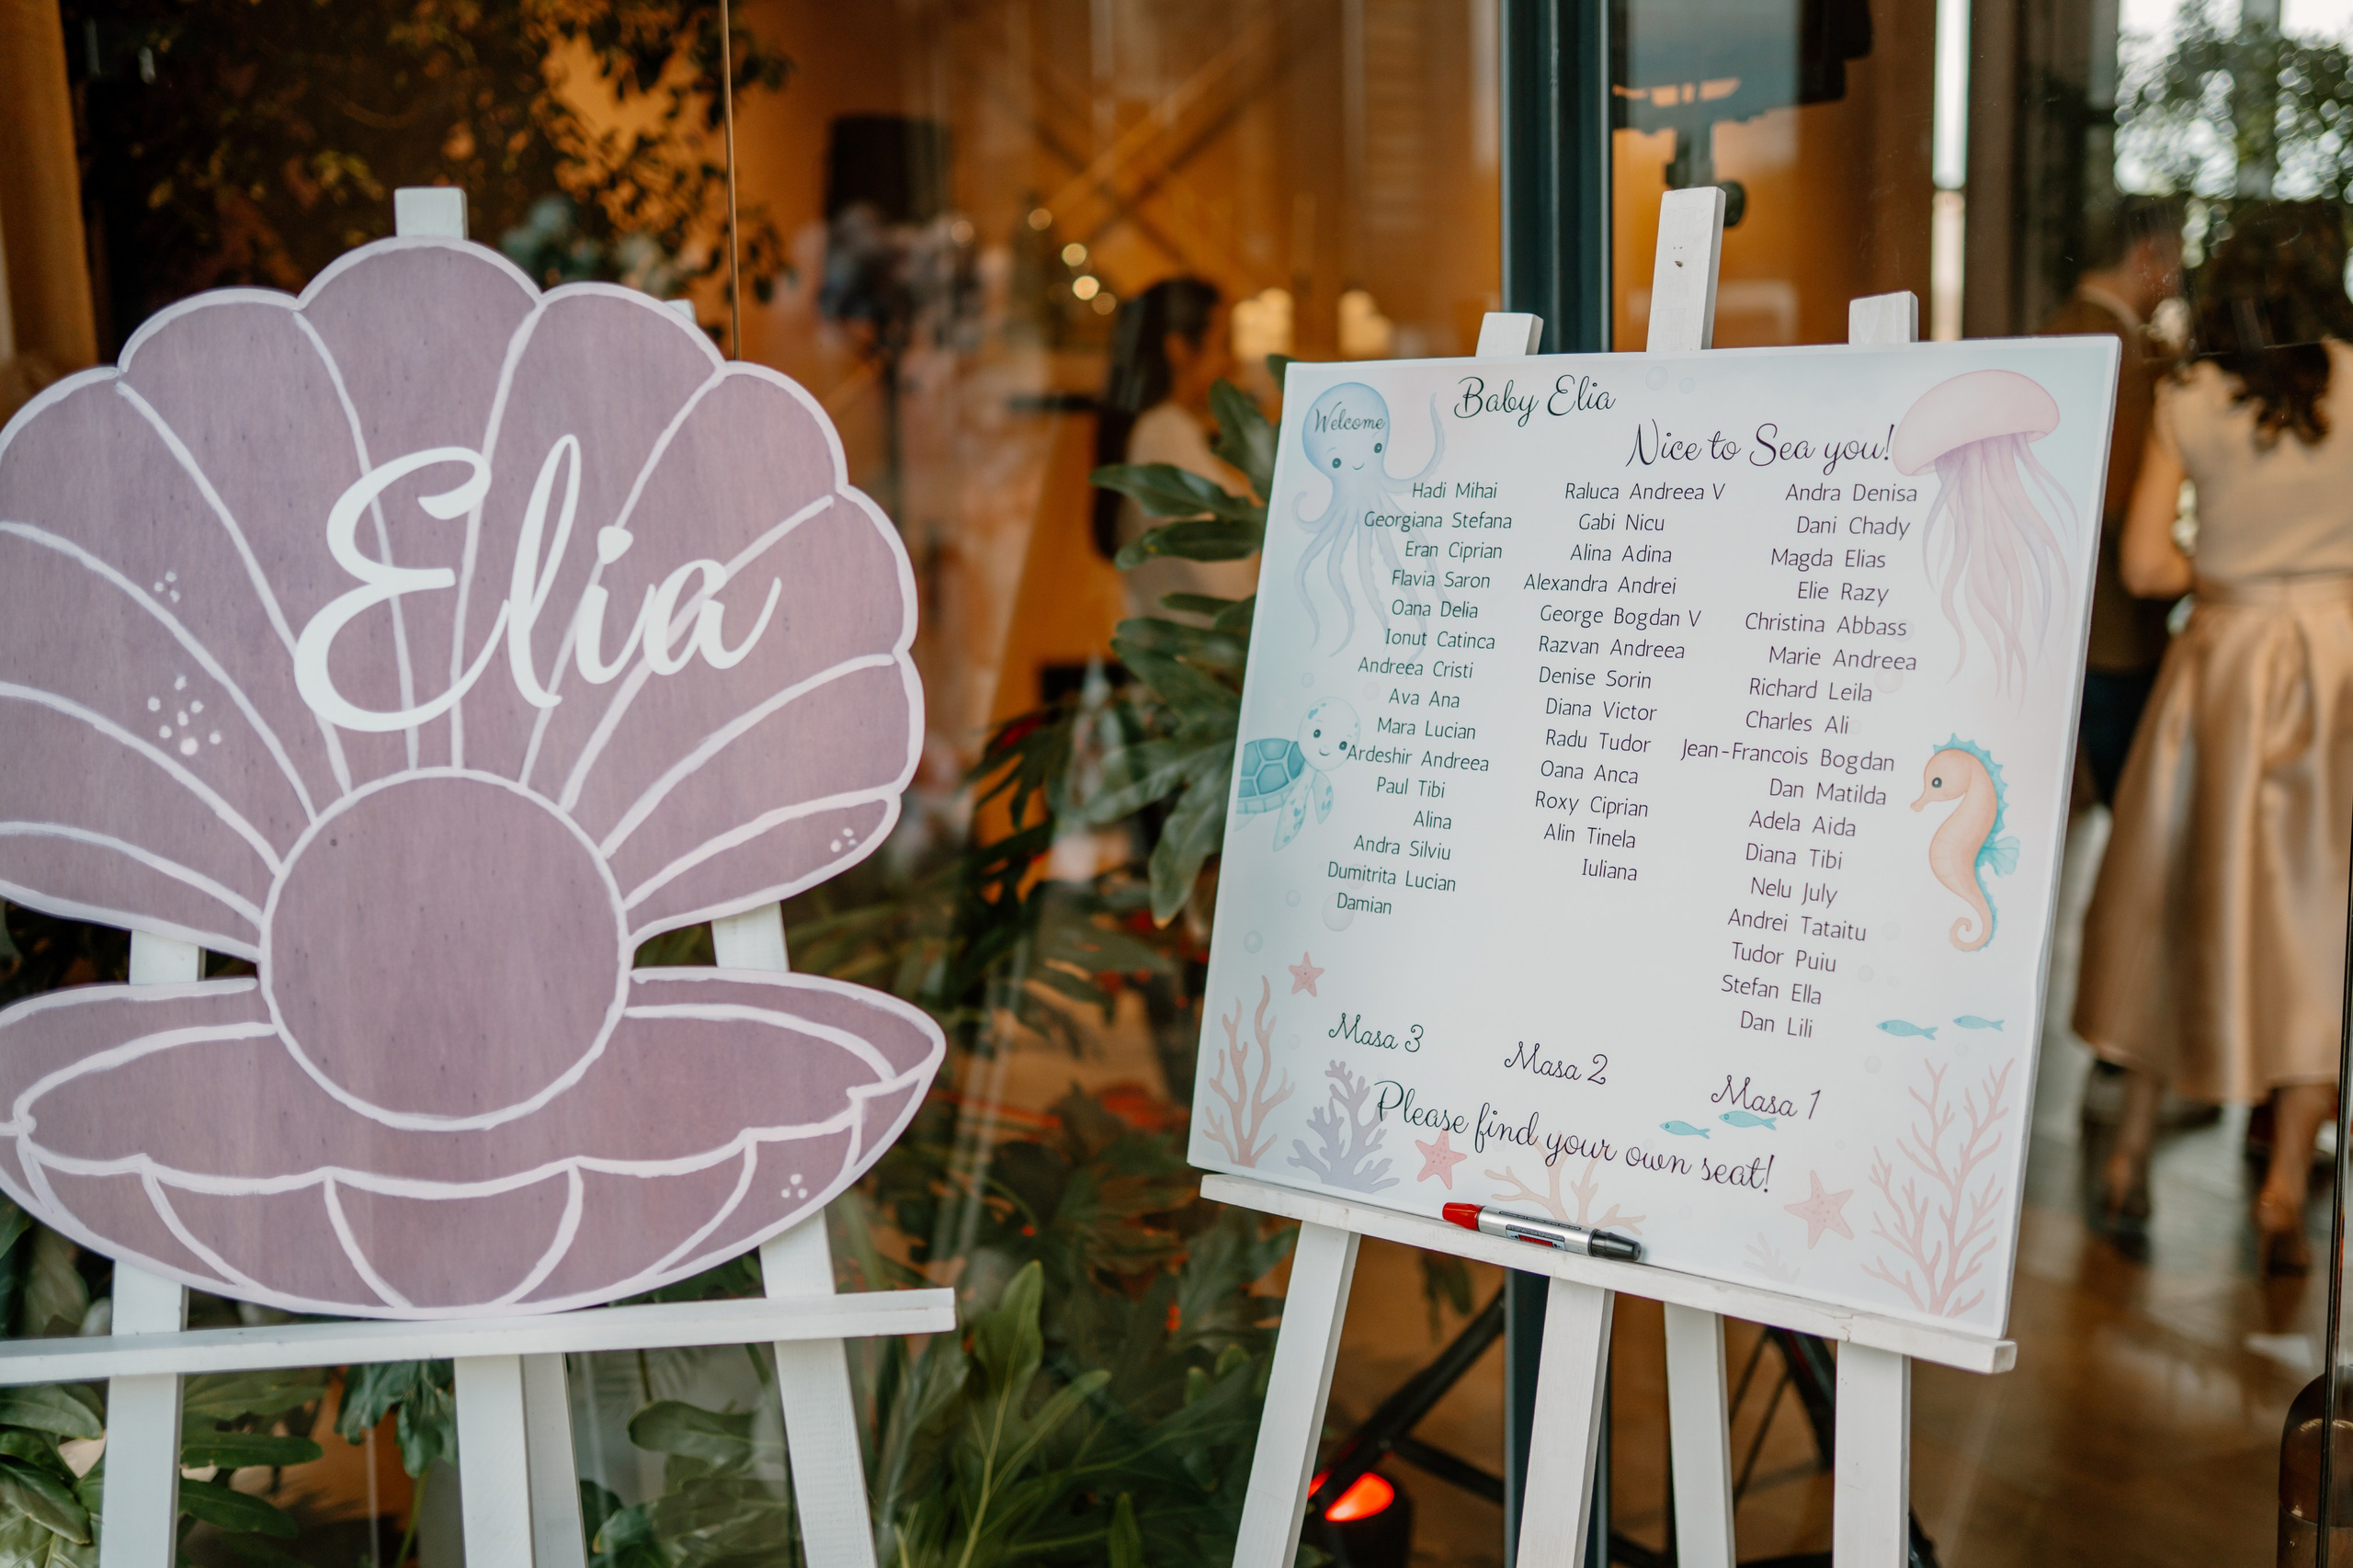 Elia
Welcome
Baby Elia
Nice to Sea you!
Hadi Mihai
Georgiana Stefana
Eran Ciprian
Flavia Saron
Oana Delia
Ionut Catinca
Andreea Cristi
Ava Ana
Mara Lucian
Ardeshir Andreea
Paul Tibi
Alina
Andra Silviu
Dumitrita Lucian
Damian
Masa 3
Raluca Andreea V
Gabi Nicu
Alina Adina
Alexandra Andrei
George Bogdan V
Razvan Andreea
Denise Sorin
Diana Victor
Radu Tudor
Oana Anca
Roxy Ciprian
Alin Tinela
Iuliana
Masa 2
Andra Denisa
Dani Chady
Magda Elias
Elie Razy
Christina Abbass
Marie Andreea
Richard Leila
Charles Ali
Jean-Francois Bogdan
Dan Matilda
Adela Aida
Diana Tibi
Nelu July
Andrei Tataitu
Tudor Puiu
Stefan Ella
Dan Lili
Masa 1
Please find your own seat!